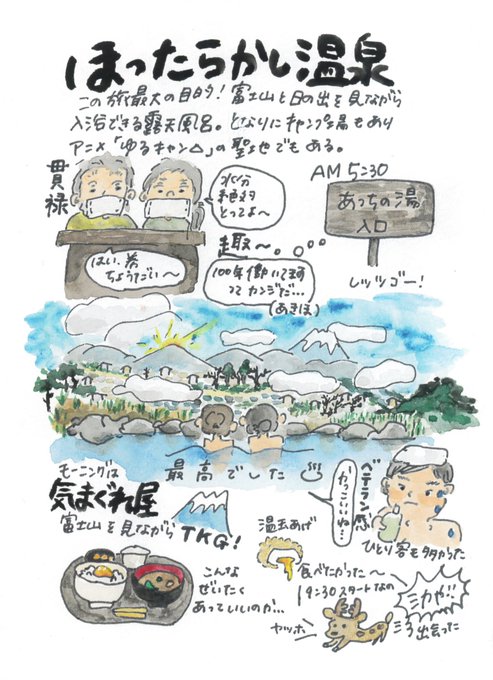 ほったらかし温泉
この旅最大の目的！富士山と日の出を見ながら
入浴できる露天風呂。となりにキャンプ場もあり
アニメ「ゆるキャン△」の聖地でもある。
貫禄
水分
絶対
とってよ〜
はい、券
ちょうだい〜
趣〜。
100年働いてます
ってカンジだ…
(あきほ)
AM 5:30
あっちの湯
入口
レッツゴー！
最高でした♨
ベテラン感
かっこいいね…
ひとり客も多かった
モーニングは
気まぐれ屋
富士山を見ながら
TKG！
こんな
ぜいたく
あっていいのか…
温玉あげ
食べたかった〜
9:30スタートなの
ミカや!!
ヤッホ
出会った